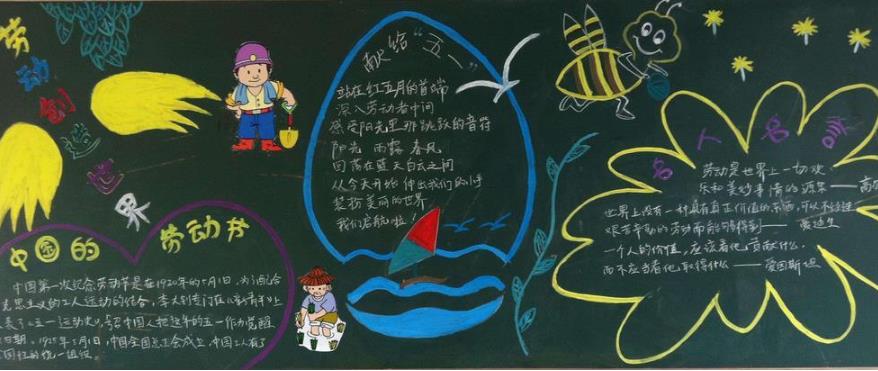 劳动创造世界
中国的
劳动节
中国第一次纪念劳动节是在1920年的5月1日，为了配合
克思主义的工人运动的结合，李大钊专门在《新青年》上
表了《五一运动史》，号召中国人把这年的五一作为觉醒
日期。1925年5月1日，中国全国总工会成立，中国工人有了
统一组织
献给“五一”
站在红五月的首端
深入劳动者中间
感受阳光里那跳跃的音符
阳光 雨露 春风
回荡在蓝天白云之间
从今天开始 伸出我们的小手
装扮美丽的世界
我们启航啦！
名人名言
劳动是世界上一切欢
乐和美妙事情的源泉——高尔
世界上没有一种具有真正价值的东西，可以不经过
艰苦辛勤的劳动而能够得到——爱迪生
一个人的价值，应该看他贡献什么，
而不应当看他取得什么——爱因斯坦